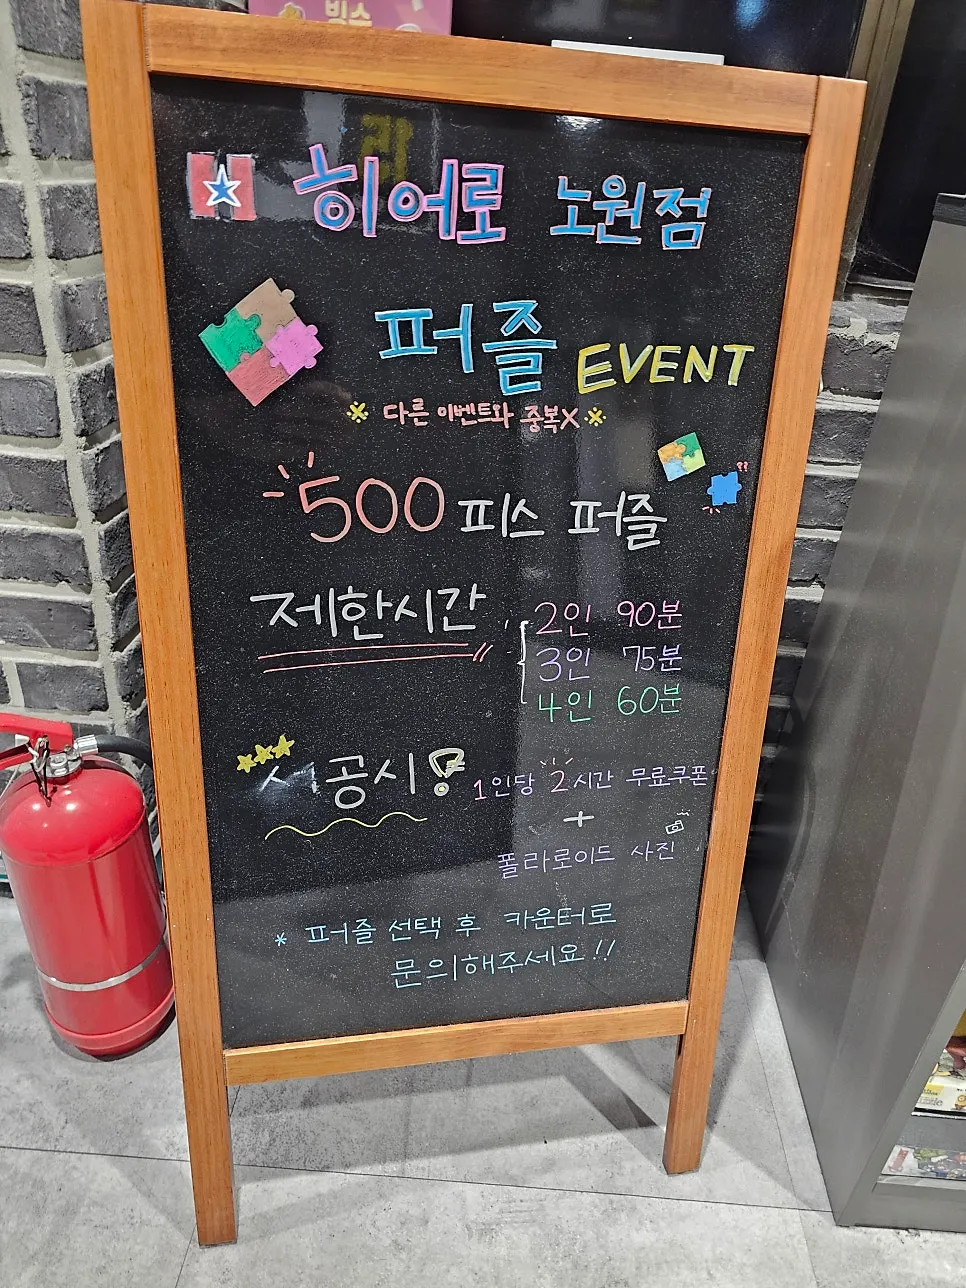 빙수
히어로 노원점
퍼즐 EVENT
※ 다른 이벤트와 중복X ※
500 피스 퍼즐
제한시간
2인 90분
3인 75분
4인 60분
공시!
1인당 2시간 무료쿠폰
+
폴라로이드 사진
* 퍼즐 선택 후 카운터로
문의해주세요!!